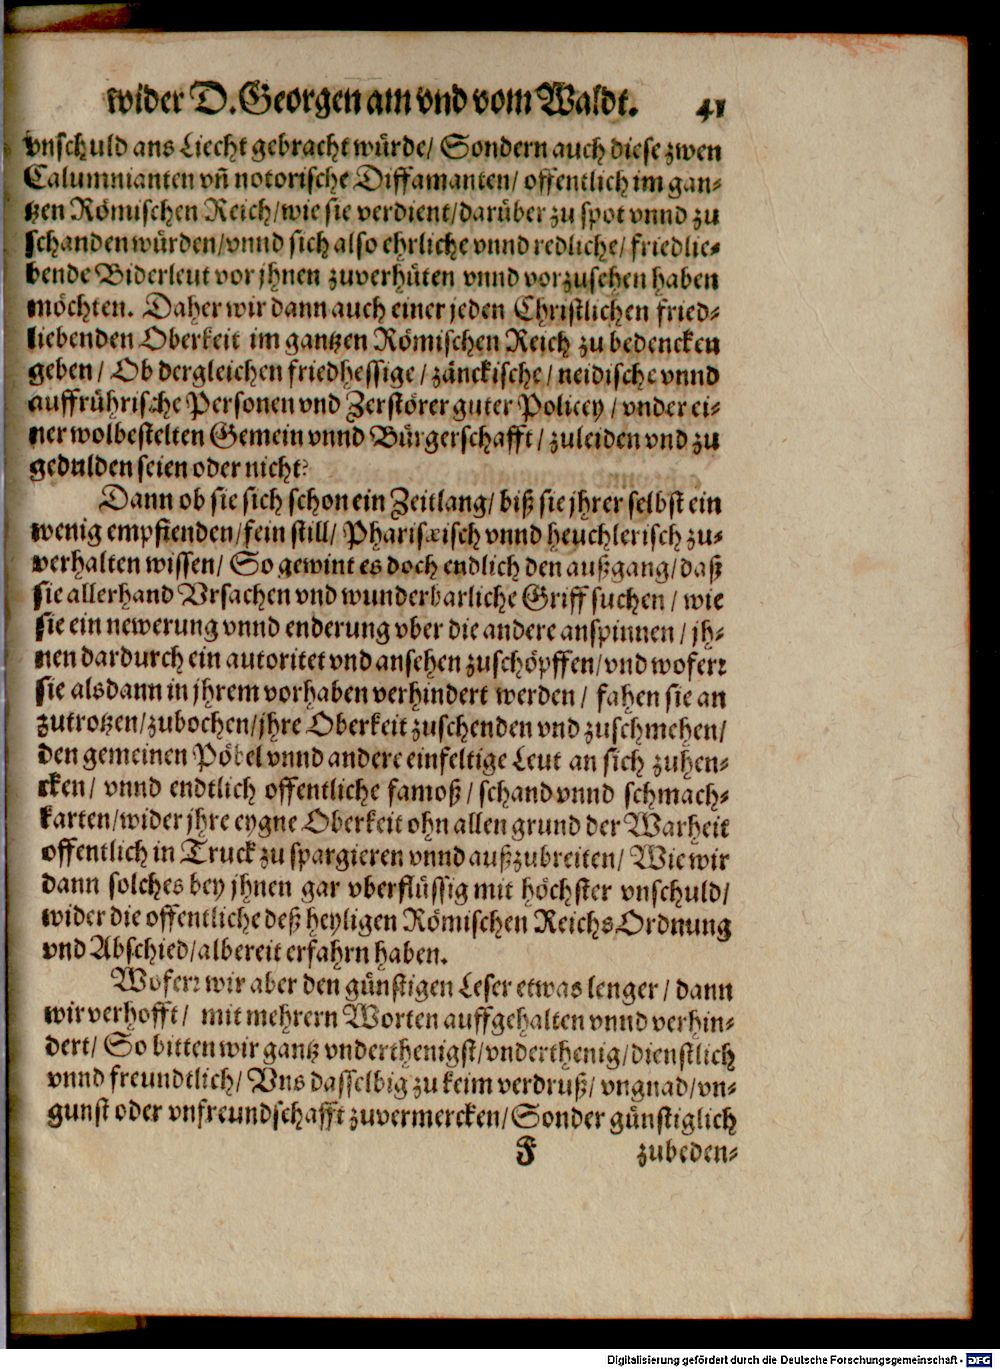 wider D. Georgen am vnd vom Waldt. 41
vnschuld ans Liecht gebracht würde/ Sondern auch diese zwen
Calumnianten vñ notorische Diffamanten/ offentlich im gan-
tzen Römischen Reich/ wie sie verdient/ darüber zu spot vnnd zu
schanden würden/ vnnd sich also ehrliche vnnd redliche/ friedlie-
bende Biderleut vor jhnen zuverhüten vnnd vorzusehen haben
möchten. Daher wir dann auch einer jeden Christlichen fried-
liebenden Oberkeit im gantzen Römischen Reich zu bedencken
geben/ Ob dergleichen friedhessige/ zänckische/ neidische vnnd
auffrührische Personen vnd Zerstörer guter Policey/ vnder ei-
ner wolbestelten Gemein vnnd Bürgerschafft/ zuleiden vnd zu
gedulden seien oder nicht?
Dann ob sie sich schon ein Zeitlang/ biß sie jhrer selbst ein
wenig empfienden/ fein still/ Pharisæisch vnnd heuchlerisch zu-
verhalten wissen/ So gewint es doch endlich den außgang/ daß
sie allerhand Vrsachen vnd wunderbarliche Griff suchen/ wie
sie ein newerung vnnd enderung vber die andere anspinnen/ jh-
nen dardurch ein autoritet vnd ansehen zuschöpffen/ vnd woferr
sie alsdann in jhrem vorhaben verhindert werden/ fahen sie an
zutrotzen/ zubochen/ jhre Oberkeit zuschenden vnd zuschmehen/
den gemeinen Pöbel vnnd andere einfeltige Leut an sich zuhen-
cken/ vnnd endtlich offentliche famoß/ schand vnnd schmach-
karten/ wider jhre eygne Oberkeit ohn allen grund der Warheit
offentlich in Truck zu spargieren vnnd außzubreiten/ Wie wir
dann solches bey jhnen gar vberflüssig mit höchster vnschuld/
wider die offentliche deß heyligen Römischen Reichs Ordnung
vnd Abschied/ albereit erfahrn haben.
Woferr wir aber den günstigen Leser etwas lenger/ dann
wir verhofft/ mit mehrern Worten auffgehalten vnnd verhin-
dert/ So bitten wir gantz vnderthenigst/ vnderthenig/ dienstlich
vnnd freundtlich/ Vns dasselbig zu keim verdruß/ vngnad/ vn-
gunst oder vnfreundschafft zuvermercken/ Sonder günstiglich
F zubeden-
Digitalisierung gefördert durch die Deutsche Forschungsgemeinschaft - DFG